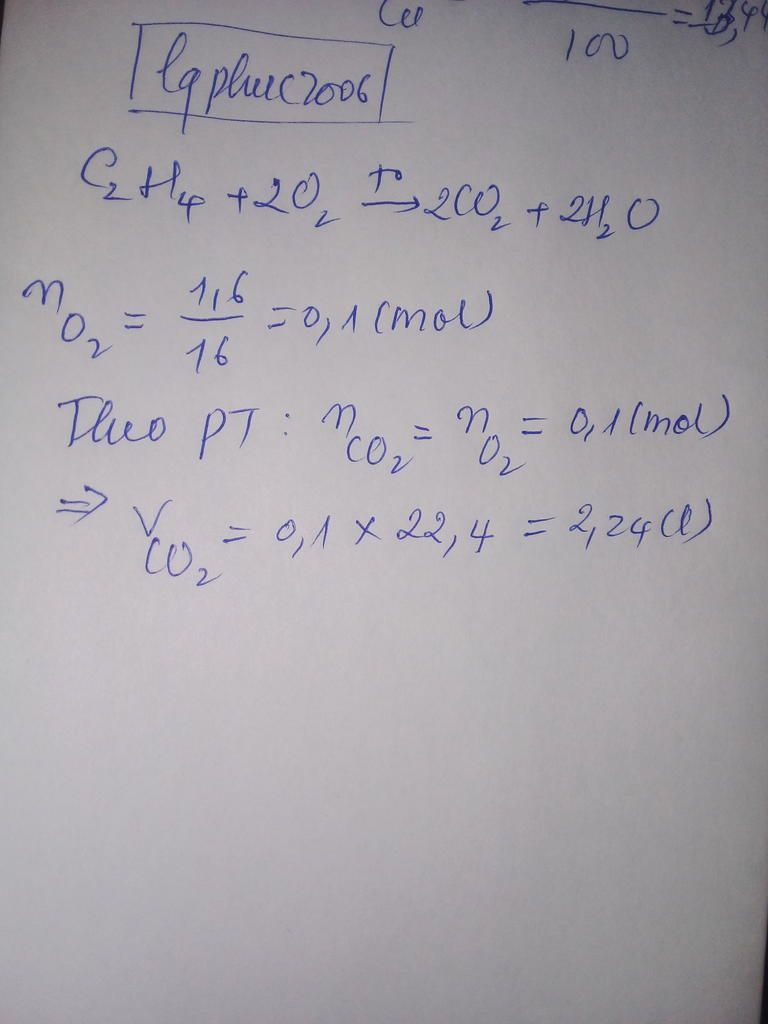 Cu = 13,44
100
lqphuc2006
C₂H₄ + 2O₂ →(t°) 2CO₂ + 2H₂O
n_O₂ = 1,6/16 = 0,1 (mol)
Theo PT : n_CO₂ = n_O₂ = 0,1 (mol)
⇒ V_CO₂ = 0,1 × 22,4 = 2,24 (l)